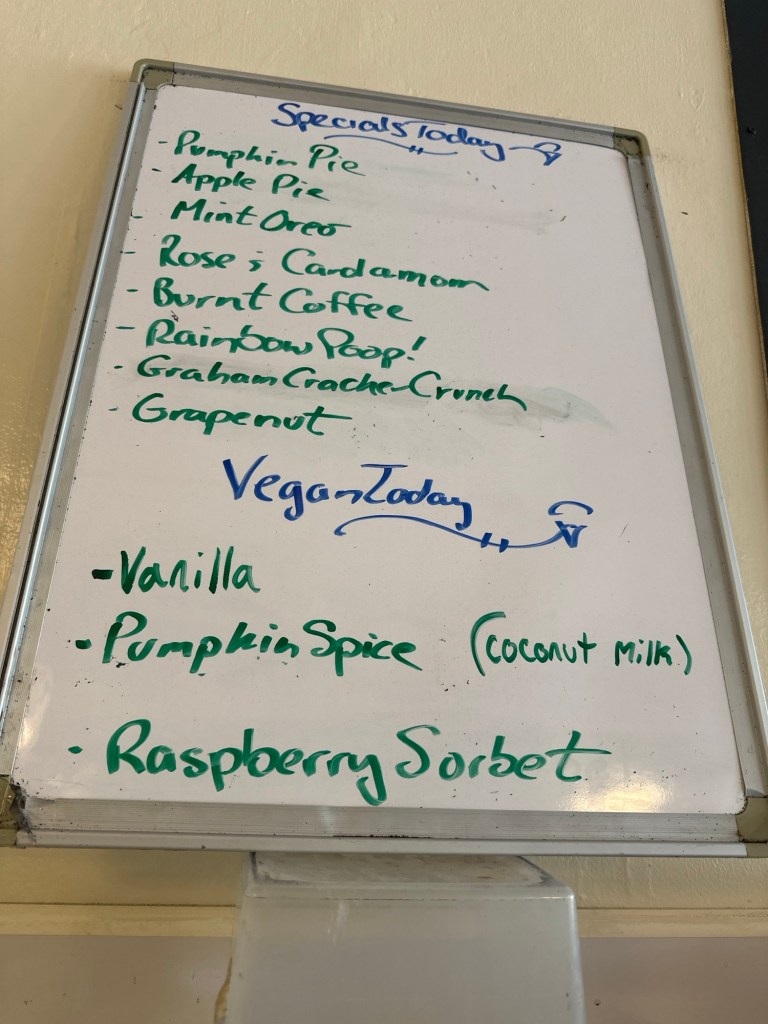 Specials Today
- Pumpkin Pie
- Apple Pie
- Mint Oreo
- Rose & Cardamom
- Burnt Coffee
- Rainbow Poop!
- Graham Cracker Crunch
- Grapenut
Vegan Today
- Vanilla
- Pumpkin Spice (coconut Milk)
- Raspberry Sorbet